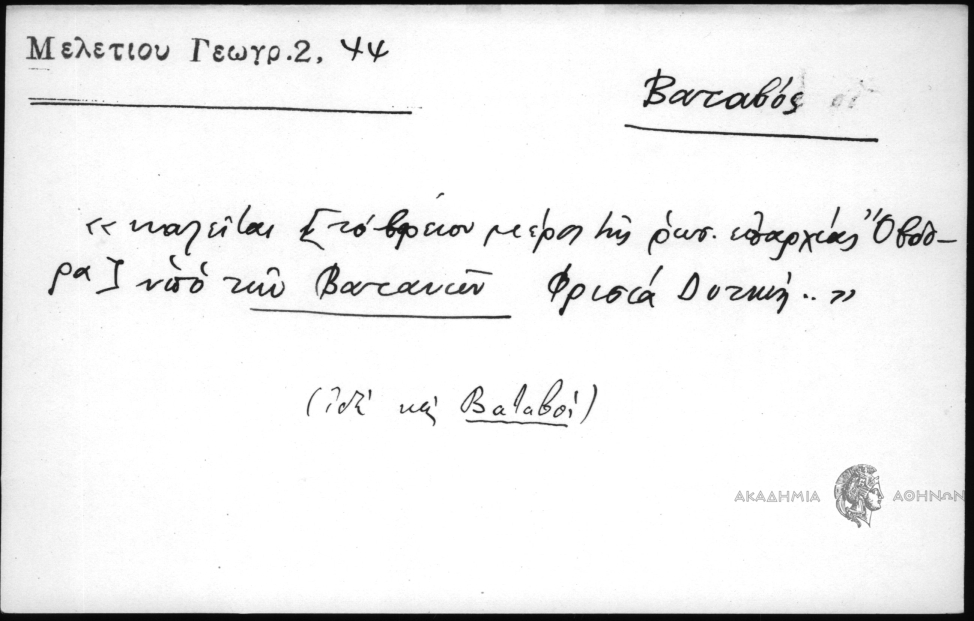 Μελετιου Γεωγρ.2, 44
Βαταβός οἱ
«καλεῖται [τό βόρειον μέρος τῆς ῥωσ. ἐπαρχίας Ὀβδό-
ρα] ὑπό τῶν Βαταυῶν Φρισιά Δυτική..»
(ἰδέ καί Βαταβοί)
ΑΚΑΔΗΜΙΑ ΑΘΗΝΩΝ